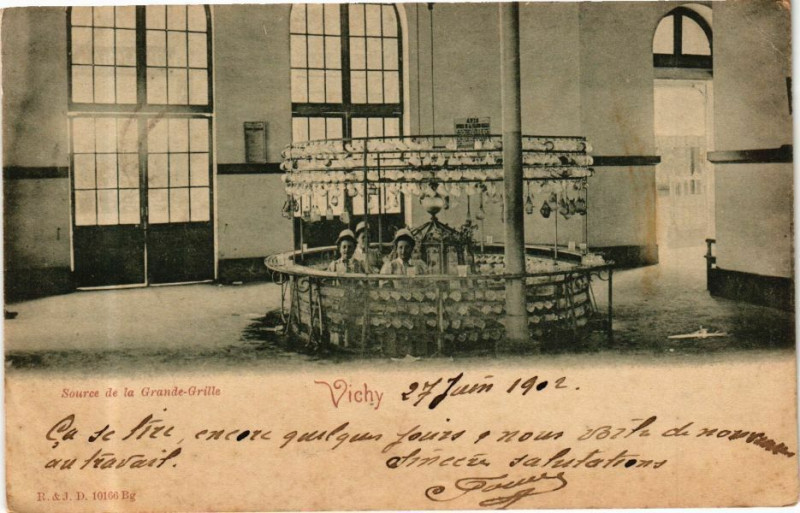 Source de la Grande-Grille
Vichy 27 Juin 1902.
Ça se tire, encore quelques jours & nous voilà de nouveau
au travail. Sincères salutations
R. & J. D. 10166 Bg